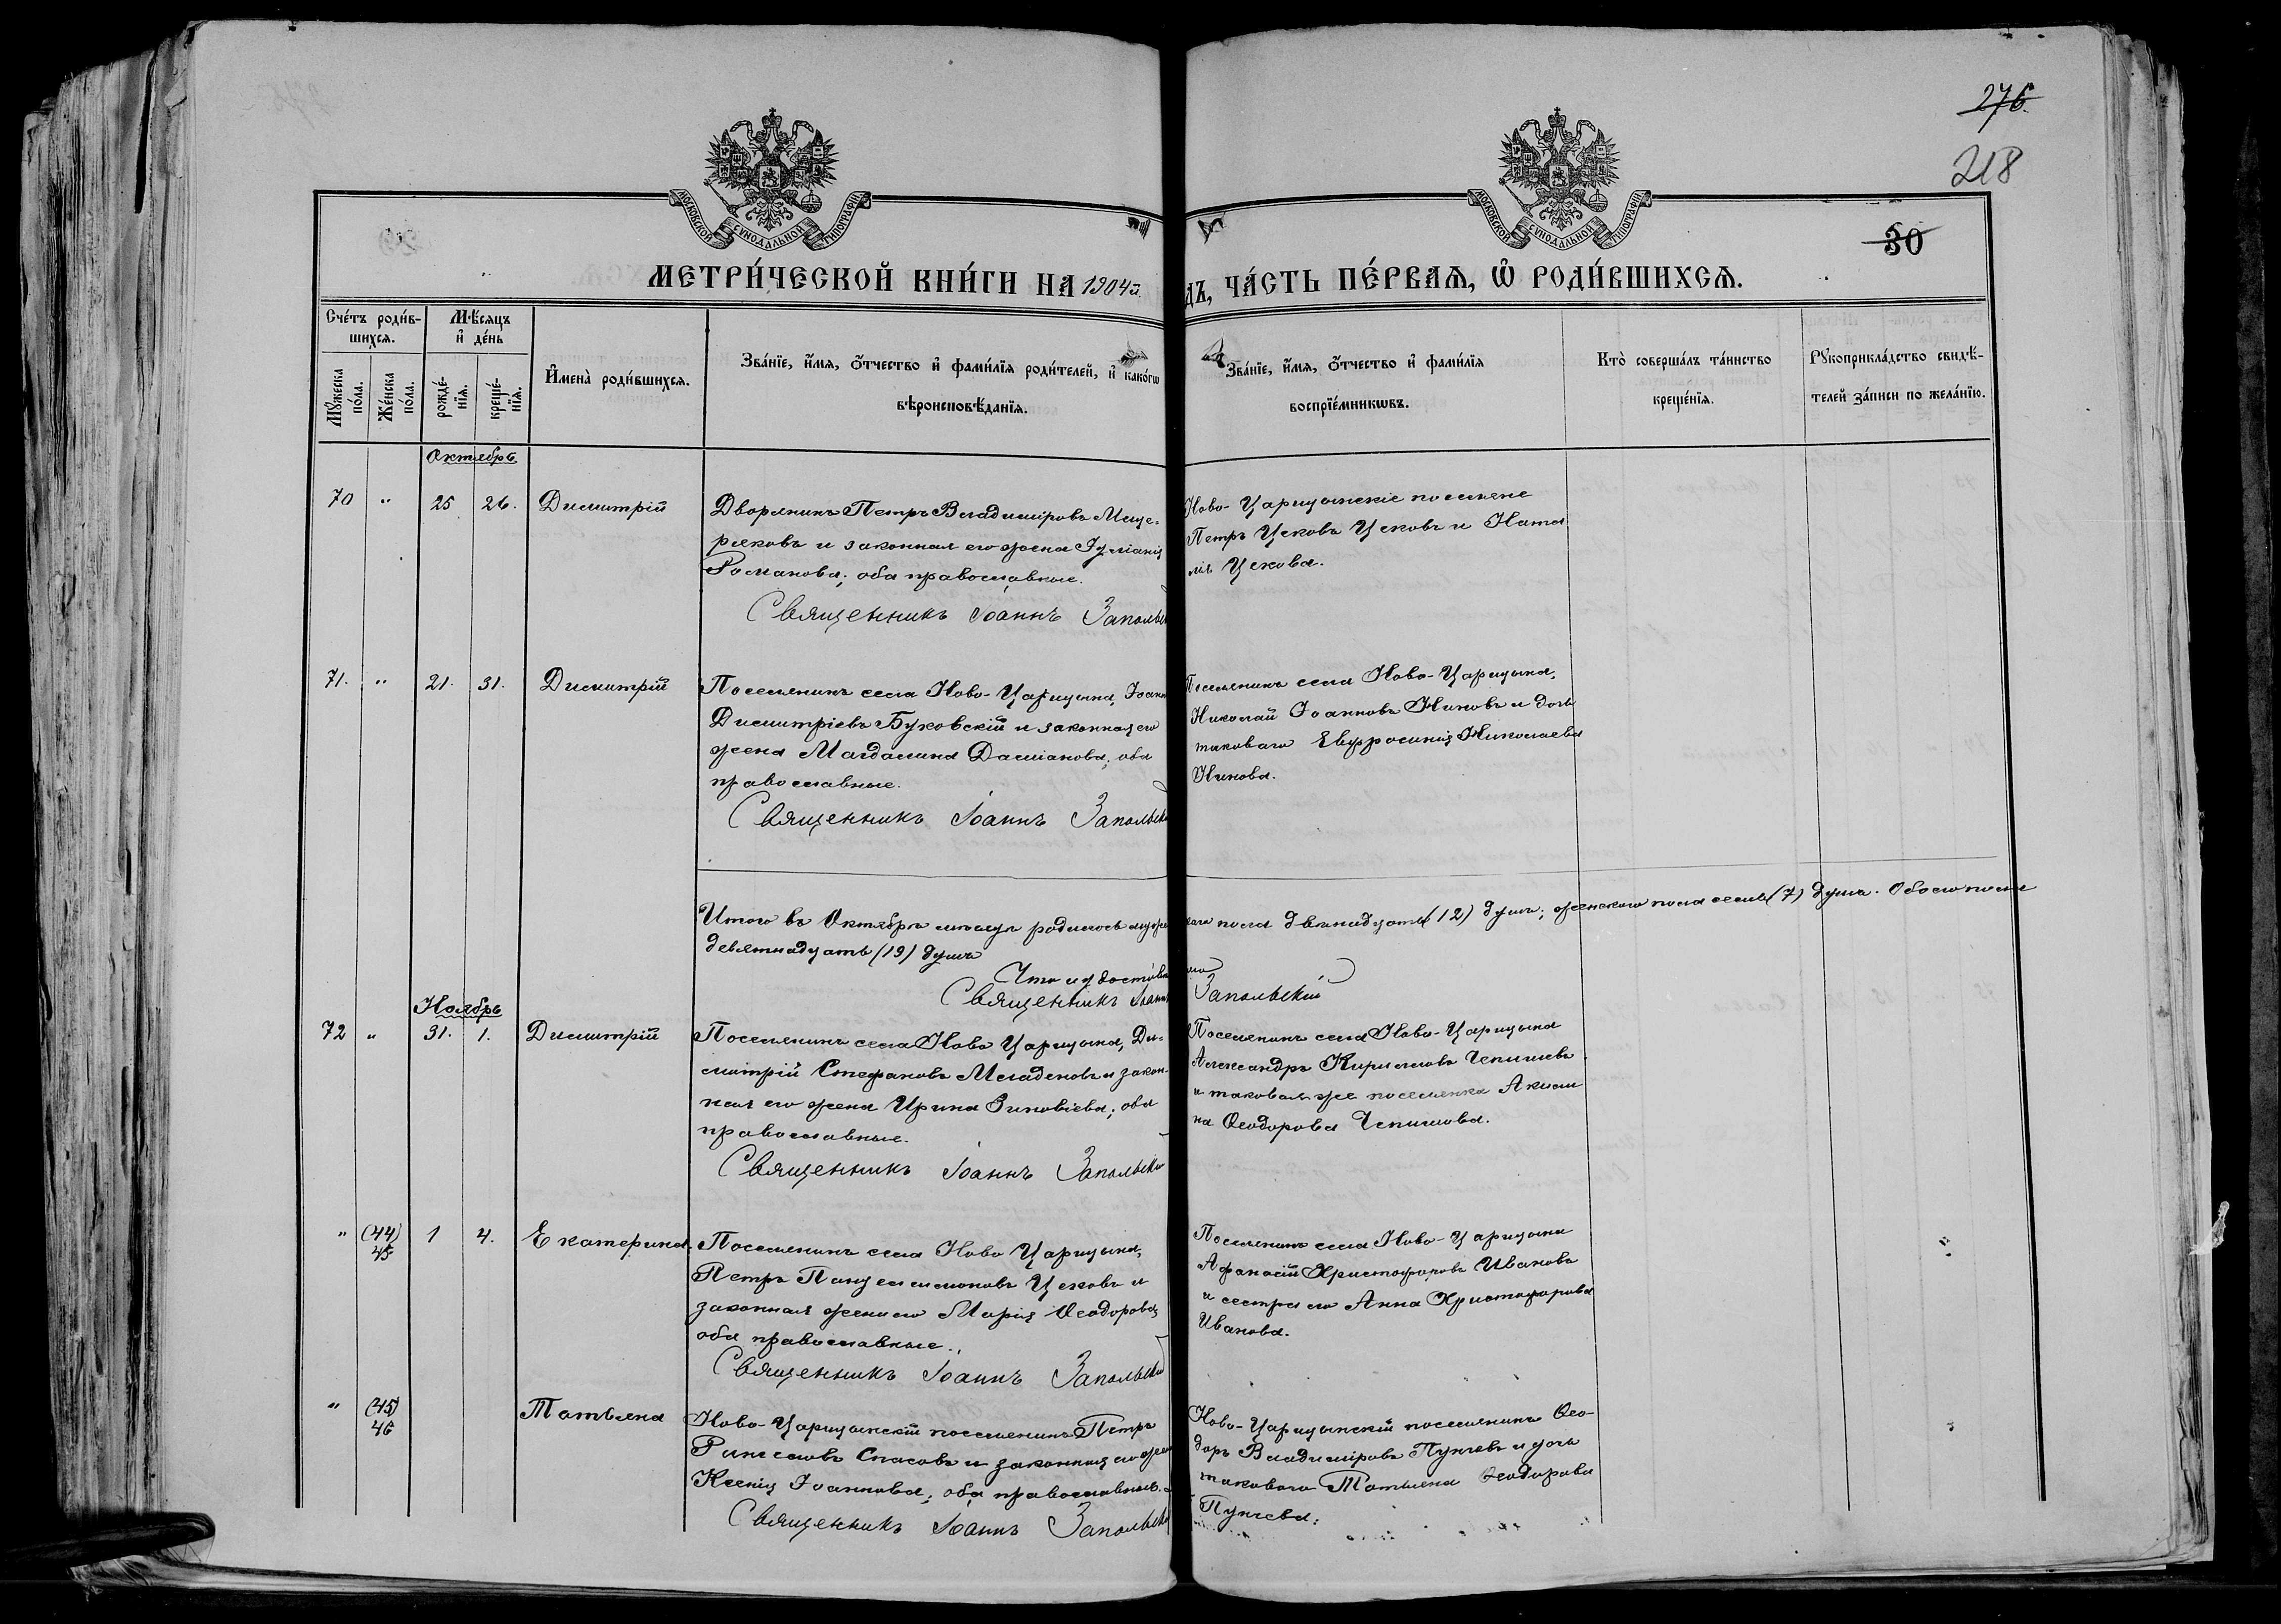 276.
218
30
МОСКОВСКОЙ СУНОДАЛЬНОЙ ТИПОГРАФІИ
МОСКОВСКОЙ СУНОДАЛЬНОЙ ТИПОГРАФІИ
МЕТРИ́ЧЕСКОЙ КНИ́ГИ НА 1904й.
ДЪ, ЧА́СТЬ ПЕ́РВАЯ, Ѽ РОДИ́ВШИХСЯ.
Сче́тъ роди́в-
шихся.
Мꙋ́жеска по́ла.
Же́нска по́ла.
Мѣ́сяцъ
и҆ де́нь
рожде́-
нїя.
креще́-
нїя.
И҆мена̀ роди́вшихся.
Зва́нїе, и҆́мя, ѻ҆́тчество и҆ фами́лїя роди́телей, и҆ како́гѡ
вѣроисповѣ́данїя.
Зва́нїе, и҆́мя, ѻ҆́тчество и҆ фами́лїя
воспрїе́мникѡвъ.
Кто̀ соверша́лъ та́инство
креще́нїя.
Рꙋкоприкла́дство свидѣ́-
телей за́писи по жела́нїю.
Октябрь
70 " 25 26. Димитрій
Дворянинъ Петръ Владиміровъ Меще-
ряковъ и законная его жена Іуліанія
Романова; оба православные.
Священникъ Іоаннъ Запольс
Ново-Царицынскіе поселяне
Петръ Цековъ Цековъ и Ната
лія Цекова.
71. " 21. 31. Димитрій
Поселянинъ села Ново-Царицына, Іоанн
Димитріевъ Буковскій и законная его
жена Магдалина Даміанова; оба
православные.
Священникъ Іоаннъ Запольскі
Поселянинъ села Ново-Царицына,
Николай Іоанновъ Ниновъ и дочь
таковаго Евфросинія Николаева
Нинова.
Итого въ Октябрѣ мѣсяцѣ родилось муже скаго пола двѣнадцать (12) душъ; женскаго пола семь (7) душъ. Обоего пола
девятнадцать (19) душъ
Что и удостовѣ
Священникъ Іоанн Запольскій
Ноябрь
72 " 31. 1. Димитрій
Поселянинъ села Ново Царицына, Ди-
митрій Стефановъ Младеновъ и закон-
ная его жена Ирина Зиновіева; оба
православные.
Священникъ Іоаннъ Запольскі
Поселянинъ села Ново-Царицына
Александръ Кирилловъ Чепишевъ
и таковая же поселянка Акили
на Ѳеодорова Чепишова.
" (44) 1 4. Екатерина.
45
Поселянинъ села Ново Царицына,
Петръ Панделимоновъ Цековъ и
законная жена его Марія Ѳеодорова;
оба православные.
Священникъ Іоаннъ Запольскі
Поселянинъ села Ново-Царицына
Афанасій Христофоровъ Ивановъ
и сестра его Анна Христофорова
Иванова.
" (45) Татьяна
46
Ново-Царицынскій поселянинъ Петръ
Спасовъ и законная его жена
Ксенія Іоаннова; оба православные.
Священникъ Іоаннъ Запольскі
Ново-Царицынскій поселянинъ Ѳео-
доръ Владиміровъ Пунчевъ и дочь
таковаго Татьяна Ѳеодорова
Пунчева.